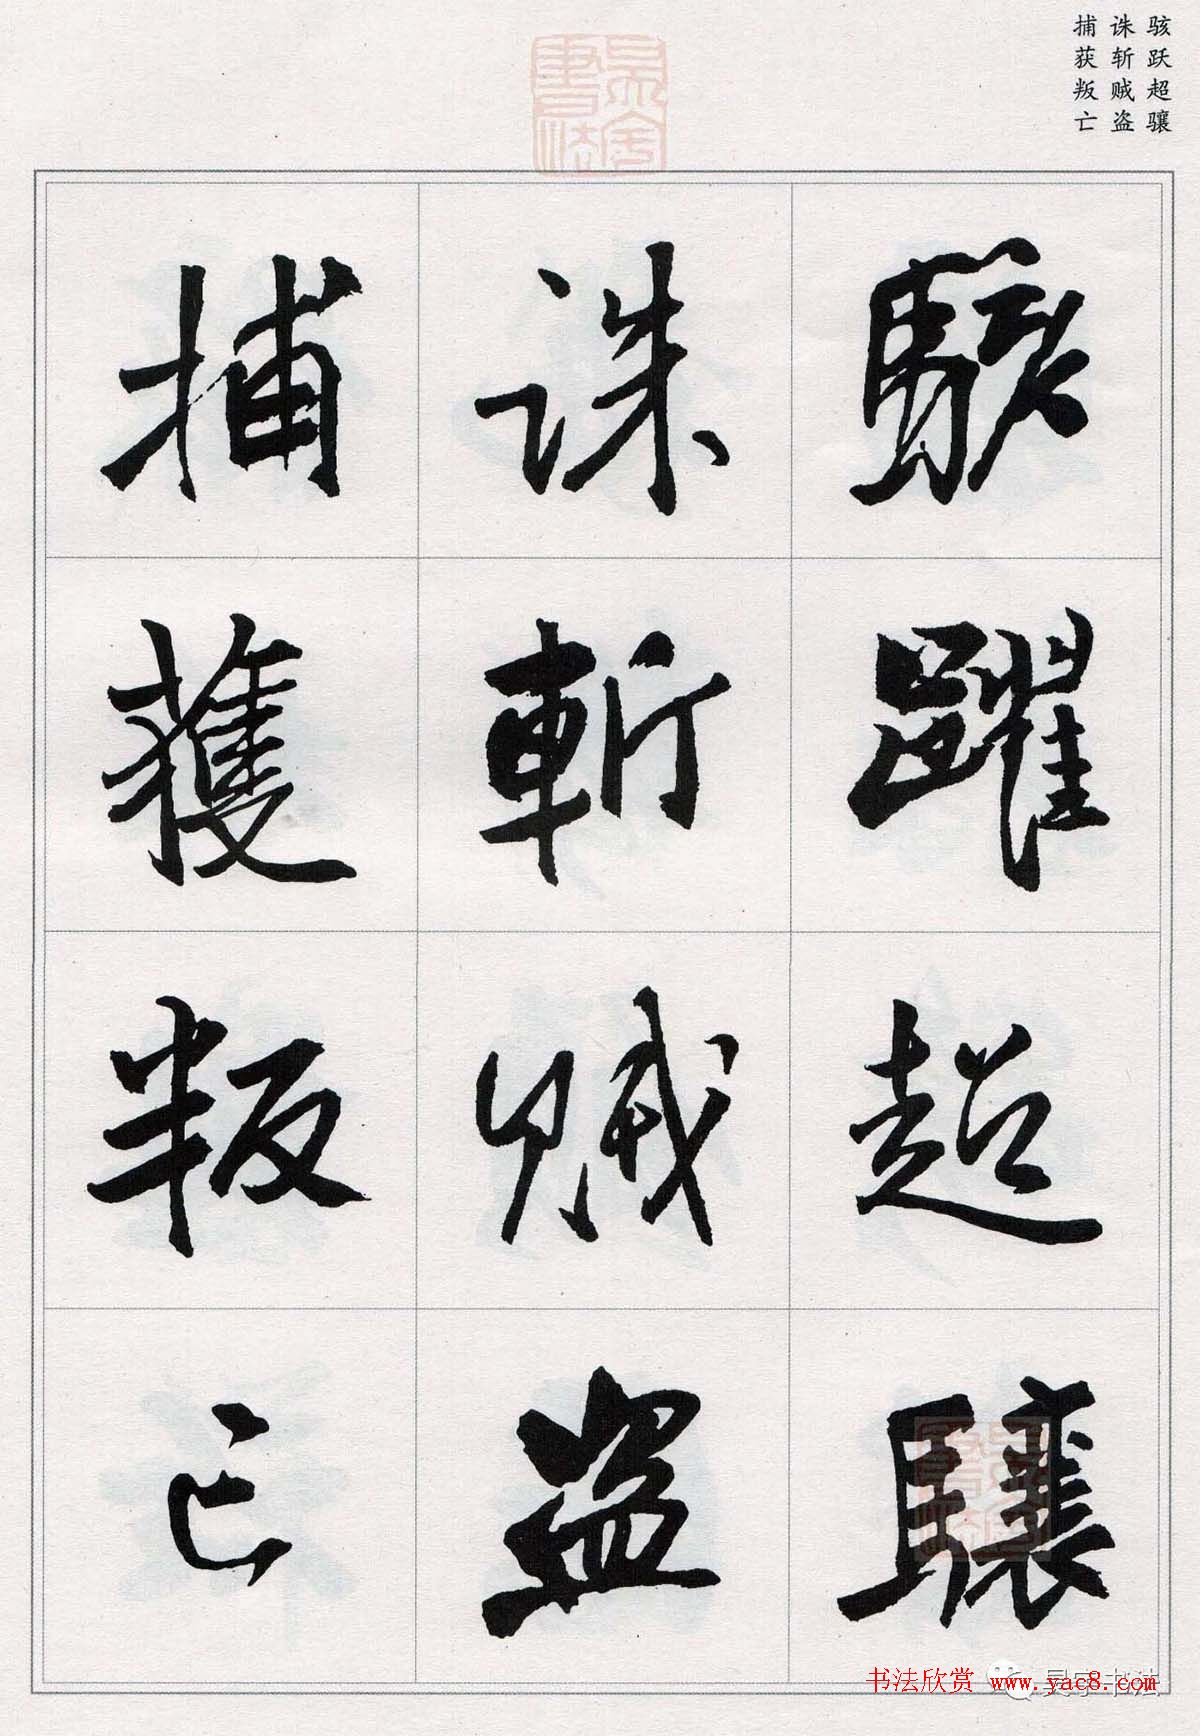 骇跃超骧
诛斩贼盗
捕获叛亡
駭躍超驤
誅斬賊盜
捕獲叛亡
书法欣赏 www.yac8.com